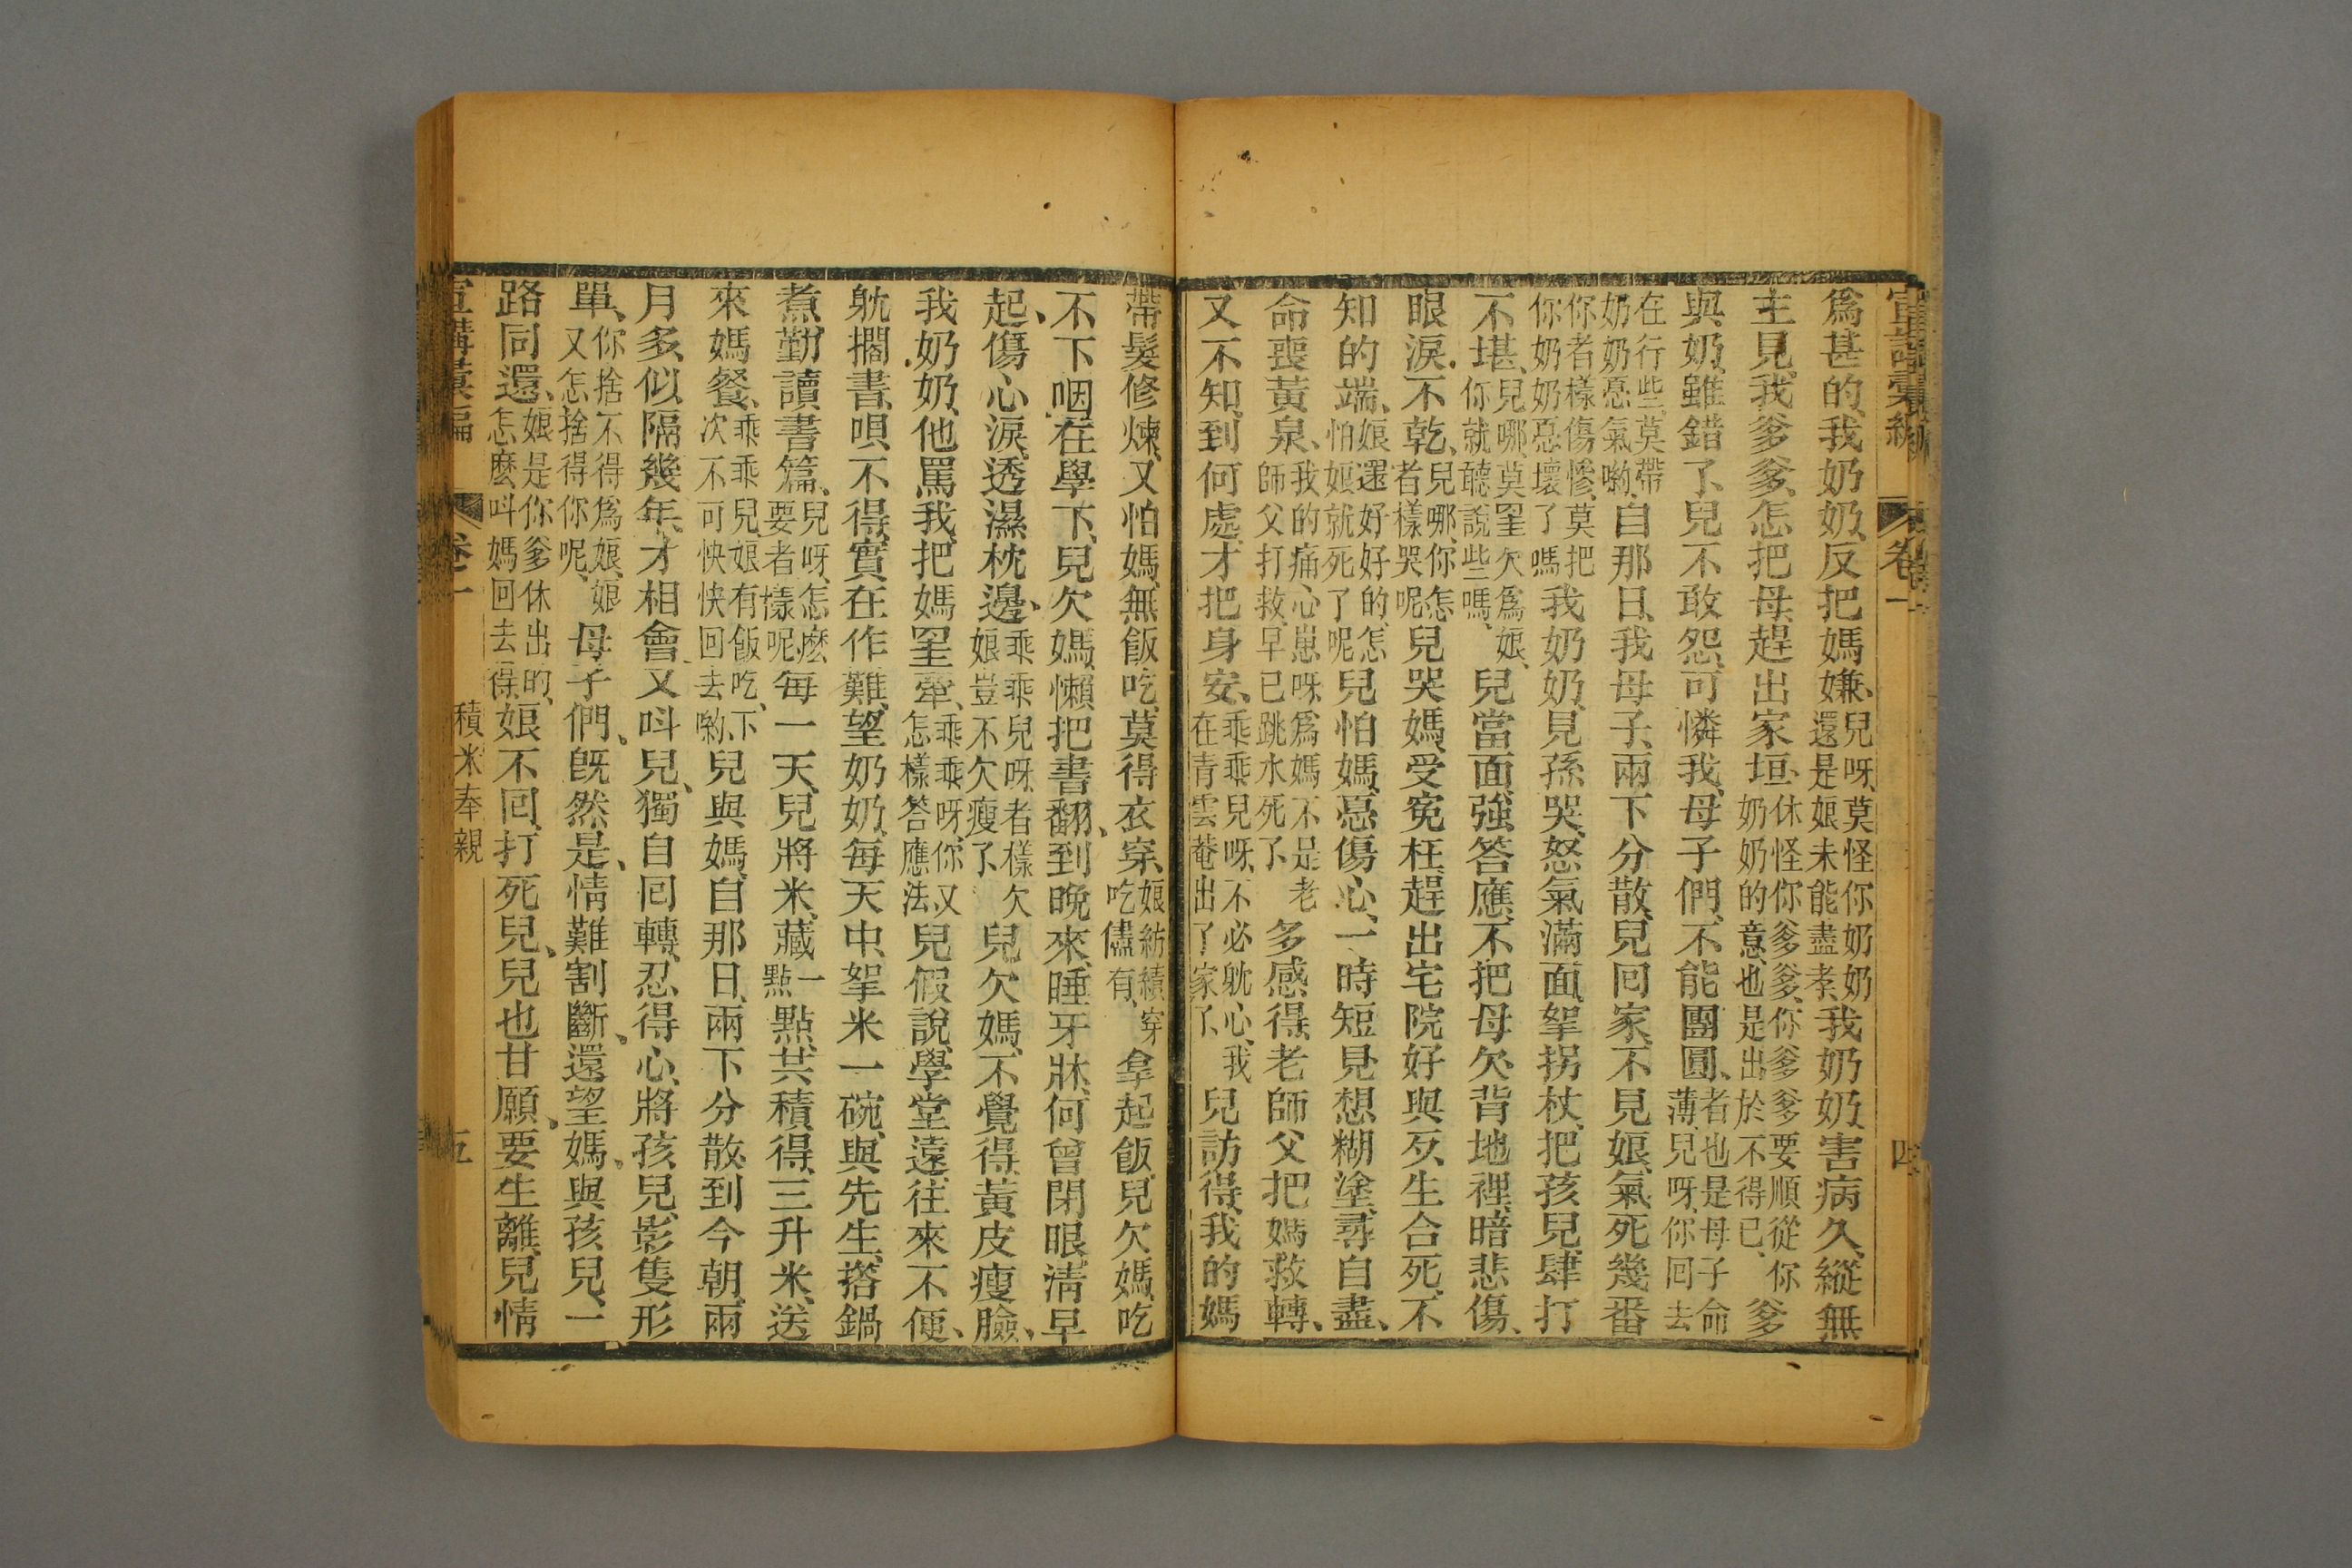 宣講彙編 卷一 四
爲甚的、我奶奶、反把媽嫌、兒呀、莫怪你奶奶還是娘未能盡孝、我奶奶、害病久、縱無
主見、我爹爹、怎把母、趕出家垣、休怪你爹爹、你爹爹要順從你奶奶的意、也是出於不得已、爹
與奶、雖錯了、兒不敢怨、可憐我、母子們、不能團圓、者也是母子命薄、兒呀、你回去
在行些、莫帶奶奶惪氣喲、自那日、我母子、兩下分散、兒回家、不見娘、氣死幾番
你者樣傷慘、莫把你奶奶惡壞了嗎我奶奶、見孫哭、怒氣滿面、挐拐杖、把孩兒、肆打
不堪、兒哪、莫罣欠爲娘、你就聽說些嗎、兒當面、強答應、不把母欠、背地裡、暗悲傷、
眼淚不乾、兒哪、你怎者樣哭呢兒哭媽、受寃枉、趕出宅院、好與歹、生合死、不
知的端、娘還好好的、怎怕娘就死了呢兒怕媽、惡傷心、一時短見、想糊塗、尋自盡、
命喪黃泉、我的痛心崽呀、爲媽不是老師父打救、早已跳水死了、多感得、老師父、把媽救轉、
又不知、到何處、才把身安、乖乖兒呀、不必躭心、我在青雲菴出了家了、兒訪得、我的媽
帶髮修煉、又怕媽、無飯吃、莫得衣穿、娘紡績、穿吃儘有、拿起飯、兒欠媽、吃
不下咽、在學下、兒欠媽、懶把書翻、到晚來、睡牙牀、何曾閉眼、清早
起、傷心淚、透濕枕邊、乖乖兒呀、者樣欠娘豈不欠瘦了、兒欠媽、不覺得、黃皮瘦臉、
我奶奶、他罵我、把媽罣牽、乖乖呀、你又怎樣答應法、兒假說、學堂遠、往來不便、
躭擱書、唄不得、實在作難、望奶奶、每天中、挐米一碗、與先生、搭鍋
煮、勤讀書篇、兒呀、怎麽要者樣呢、每一天、兒將米、藏一點點、共積得、三升米、送
來媽餐、乖乖兒、娘有飯吃、下次不可快快回去喲、兒與媽、自那日、兩下分散、到今朝、兩
月多、似隔幾年、才相會、又呌兒、獨自回轉、忍得心、將孩兒、影隻形
單、你捨不得爲娘、娘又怎捨得你呢、母子們、旣然是、情難割斷、還望媽、與孩兒、一
路同還、娘是你爹休出的、怎麽呌媽回去得、娘不回、打死兒、兒也甘願、要生離、兒情
宣講彙編 卷一 積米奉親 五